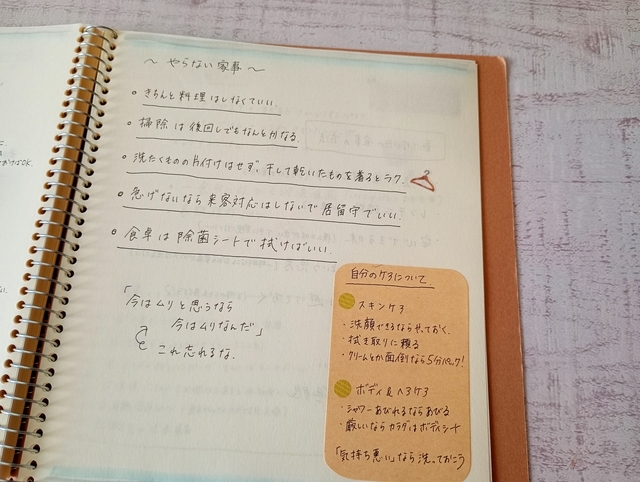 ～ やらない家事 ～
・きちんと料理はしなくていい。
・掃除は後回しでもなんとかなる
・洗たくものの片付けはせず、干して乾いたものを着るとラク。
・急げないなら来客対応はしないで居留守でいい。
・食卓は除菌シートで拭けばいい。
「今はムリと思うなら
今はムリなんだ」
これ忘れるな.
自分のケアについて
スキンケア
・洗顔できるならやっておく.
・拭き取りに頼る
・クリームとか面倒なら5分パック!
ボディ&ヘアケア
・シャワーあびれるならあびる
・厳しいならカラダはボディシート
「気持ち悪い」なら洗っておこう